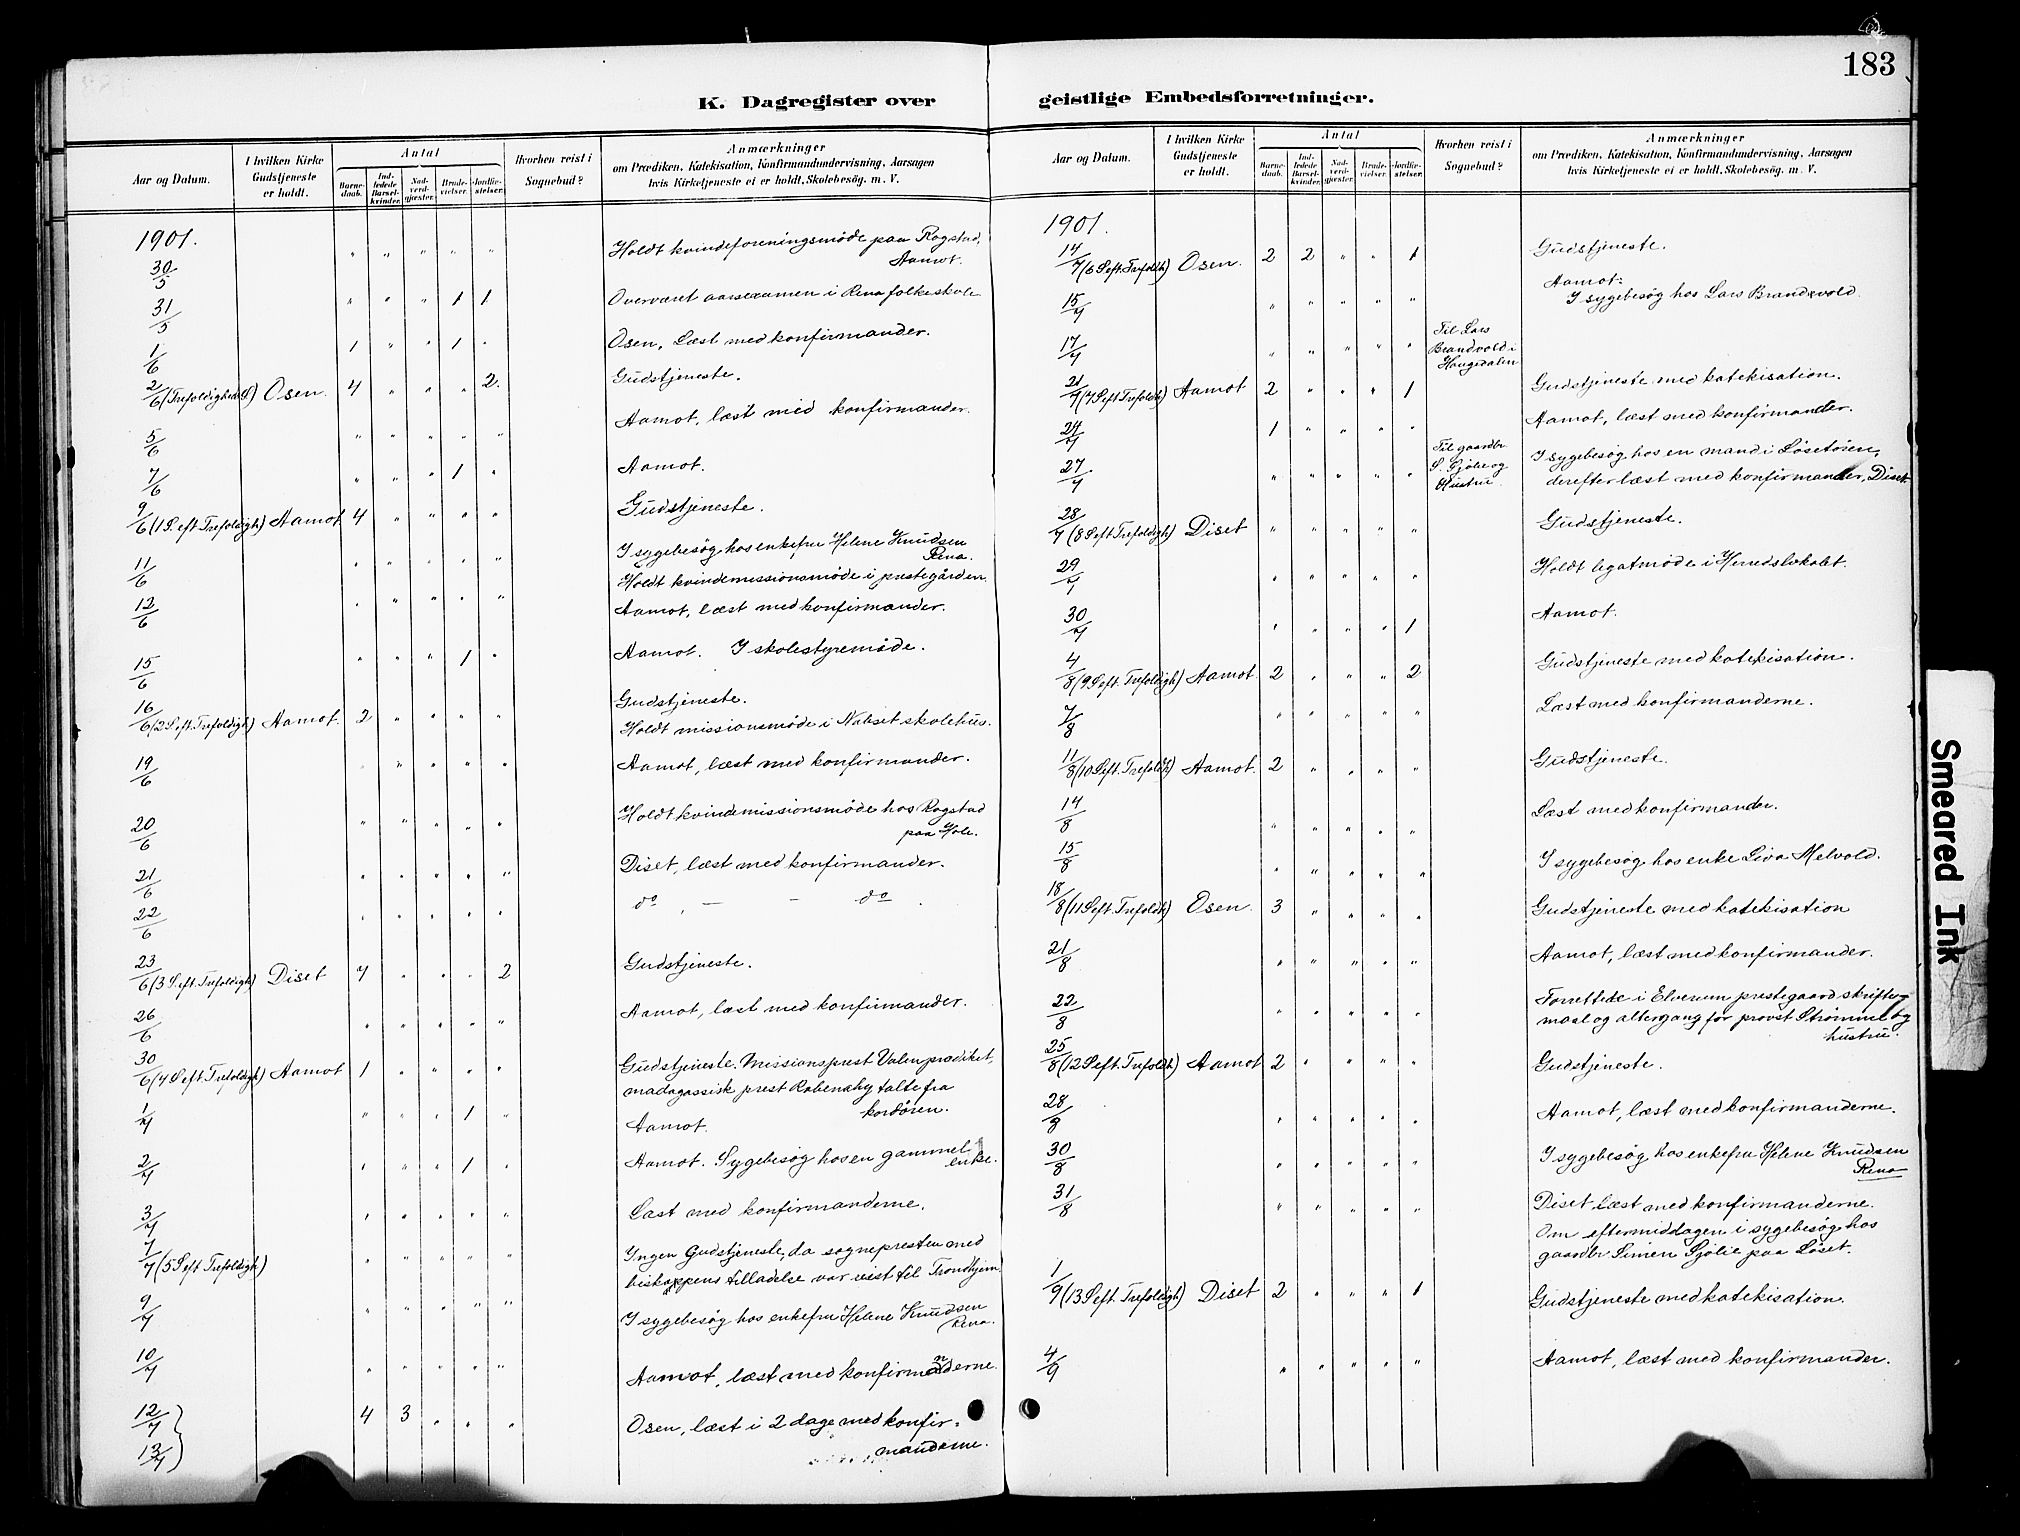 183
K. Dagregister over geistlige Embedsforretninger.
Aar og Datum.
I hvilken Kirke Gudstjeneste er holdt.
Antal
Barnedaab.
Indledede Barselkvinder.
Nadverdgjæster.
Brudevielser.
Jordfæstelser.
Hvorhen reist i Sognebud?
Anmærkninger
om Prædiken, Katekisation, Konfirmandundervisning, Aarsagen
hvis Kirketjeneste ei er holdt, Skolebesög. m. V.
1901.
30/5 " " " " " Holdt kvindeforeningsmöde paa Rogstad,
Aamot.
31/5 " " " 1 1 Overværet aarsexamen i Rena folkeskole
1/6 1 " " 1 " Osen, Læst med konfirmander.
2/6 (Trefoldigheds) Osen. 4 " " " 2. Gudstjeneste.
5/6 " " " " " Aamot, læst med konfirmander.
7/6 " " " 1 " Aamot.
9/6 (1 S. eft. Trefoldigh) Aamot 4 " " " " Gudstjeneste.
11/6 " " " " " I sygebesög hos enkefru Helene Knudsen
Rena.
Holdt kvindemissionsmöde i prestegården
12/6 " " " " " Aamot, læst med konfirmander.
15/6 " " " 1 " Aamot. I skolestyremöde.
16/6 (2 S. eft. Trefoldigh) Aamot. 2 " " " " Gudstjeneste.
Holdt missionsmöde i Nabset skolehus.
19/6 " " " " " Aamot, læst med konfirmander.
20/6 " " " " " Holdt kvindemissionsmöde hos Rogstad
paa Hole.
21/6 " " " " " Diset, læst med konfirmander.
22/6 " " " " " do , — - do .
23/6 (3 S. eft. Trefoldigh) Diset 7 " " " 2 Gudstjeneste.
26/6 " " " " " Aamot, læst med konfirmander.
30/6 (4 S. eft. Trefoldigh) Aamot 1 " " " " Gudstjeneste. Missionsprest Valen prædiket,
madagassisk prest Rabenahy talte fra
kordören.
1/7 " " " 1 " Aamot.
2/7 " " " 1 " Aamot. Sygebesög hos en gammel
enke.
3/7 " " " " " Læst med konfirmanderne.
7/7 (5 S eft Trefoldigh) " " " " " Ingen Gudstjeneste, da sognepresten med
biskoppens tilladelse var reist til Trondhjem.
9/7 " " " " " I sygebesög hos enkefru Helene Knudsen
Rena.
10/7 " " " " " Aamot, læst med konfirmanderne.
12/7 } 4 3 " " " Osen, læst i 2 dage med konfir-
13/7 } manderne.
Aar og Datum.
I hvilken Kirke Gudstjeneste er holdt.
Antal
Barnedaab.
Indledede Barselkvinder.
Nadverdgjæster.
Brudevielser.
Jordfæstelser.
Hvorhen reist i Sognebud?
Anmærkninger
om Prædiken, Katekisation, Konfirmandundervisning, Aarsagen
hvis Kirketjeneste ei er holdt, Skolebesög. m. V.
1901.
14/7 (6 S eft. Trefoldh) Osen. 2 2 " " 1 Gudstjeneste.
15/7 " " " " " Aamot:
I sygebesög hos Lars Brandvold.
17/7 " " " " " Til Lars
Brandvold i
Haugedalen
21/7 (7 S eft Trefoldh) Aamot 2 " " " 1 Gudstjeneste med katekisation.
24/7 1 " " " " Aamot, læst med konfirmander.
27/7 " " " " " Til gaardbr. S. Sjölie og Hustru. I sygebesög hos en mand i Lösetåren,
derefter læst med konfirmander, Diset
28/7 (8 S eft Trefoldigh) Diset " " " " " Gudstjeneste.
29/7 " " " " " Holdt legatmöde i Herredslokalet.
30/7 " " " " 1 Aamot.
4/8 (9 S eft. Trefoldigh) Aamot. 2 " " " 2 Gudstjeneste med katekisation.
7/8 " " " " " Læst med konfirmanderne.
11/8 (10 S eft. Trefoldh) Aamot. 2 " " " " Gudstjeneste.
14/8 " " " " " Læst med konfirmander.
15/8 " " " " " I sygebesög hos enke Liva Melvold.
18/8 (11 S eft. Trefoldh) Osen. 3 " " " " Gudstjeneste med katekisation
21/8 " " " " " Aamot, læst med konfirmander.
22/8 " " " " " Forrettede i Elverum prestegaard skrifte-
maal og altergang for provst Strömme og
hustru.
25/8 (12 S eft. Trefoldh) Aamot 2 " " " " Gudstjeneste.
28/8 " " " " " Aamot, læst med konfirmanderne.
30/8 " " " " " I sygebesög hos enkefru Helene Knudsen
Rena
31/8 " " " " " Diset læst med konfirmanderne.
Om eftermiddagen i sygebesög hos
gaardbr Simen Sjölie paa Löset.
1/9 (13 S eft. Trefoldigh) Diset 2 " " " 1 Gudstjeneste med katekisation.
4/9 " " " " " Aamot, læst med konfirmander.
Smeared Ink